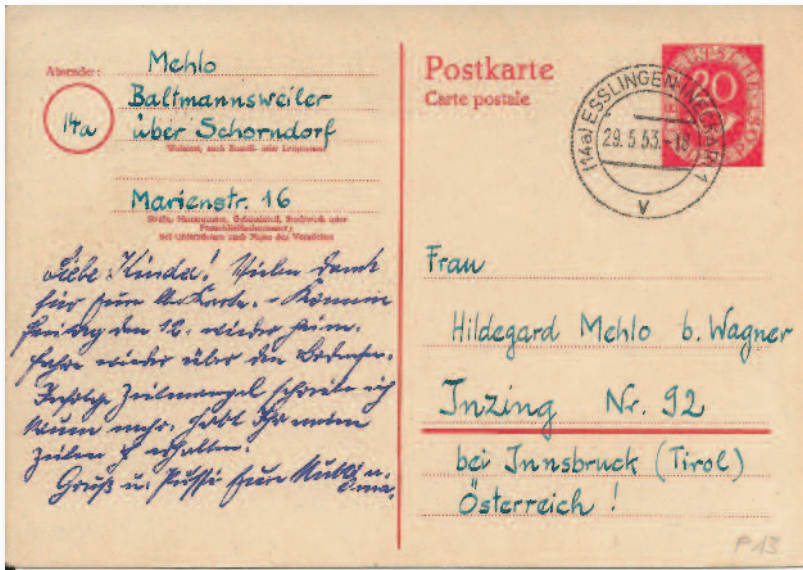 Absender:
Mehlo
Baltmannsweiler
14a
über Schorndorf
Wohnort, auch Zustell- oder Leitpostamt
Marienstr. 16
Straße, Hausnummer, Gebäudeteil, Stockwerk oder
Postschließfachnummer;
bei Untermietern auch Name des Vermieters
Liebe Kinder! Vielen Dank
für Eure Karte. - Komme
Freitag den 12. wieder heim.
fahre wieder über den Bodensee.
Infolge Zeitmangel schreibe ich
kaum mehr. Habt Ihr meine
Zeilen erhalten.
Gruß u. Pussi Eure Mutti u.
Oma.
Postkarte
Carte postale
DEUTSCHE
20
POST
(14a) ESSLINGEN (NECKAR) 1
29.5.53.-18
V
Frau
Hildegard Mehlo b. Wagner
Inzing Nr. 92
bei Innsbruck (Tirol)
Österreich !
P 13